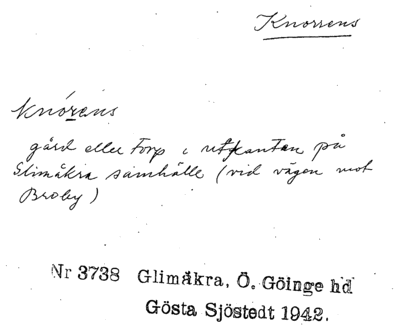 Knorrens
knórens
gård eller torp i utkanten på
Glimåkra samhälle (vid vägen mot
Broby)
Nr 3738 Glimåkra, Ö. Göinge hd
Gösta Sjöstedt 1942.